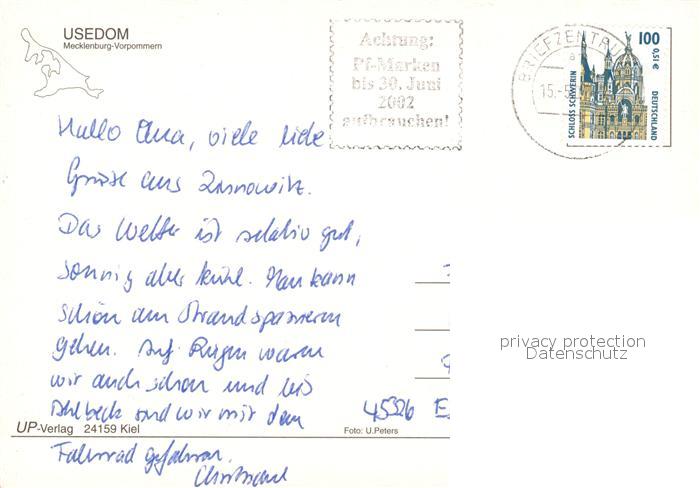 USEDOM
Mecklenburg-Vorpommern
Achtung:
Pf-Marken
bis 30. Juni
2002
aufbrauchen!
BRIEFZENTRUM
a
15.-5
100
0,51€
SCHLOSS SCHWERIN
DEUTSCHLAND
Hallo Oma, viele liebe
Grüße aus Zinnowitz.
Das Wetter ist relativ gut,
sonnig aber kühl. Man kann
schön am Strand spazieren
gehen. Auf Rügen waren
wir auch schon und bis
Ahlbeck sind wir mit dem
Fahrrad gefahren.
45326 E
UP-Verlag 24159 Kiel
Foto: U.Peters
privacy protection
Datenschutz